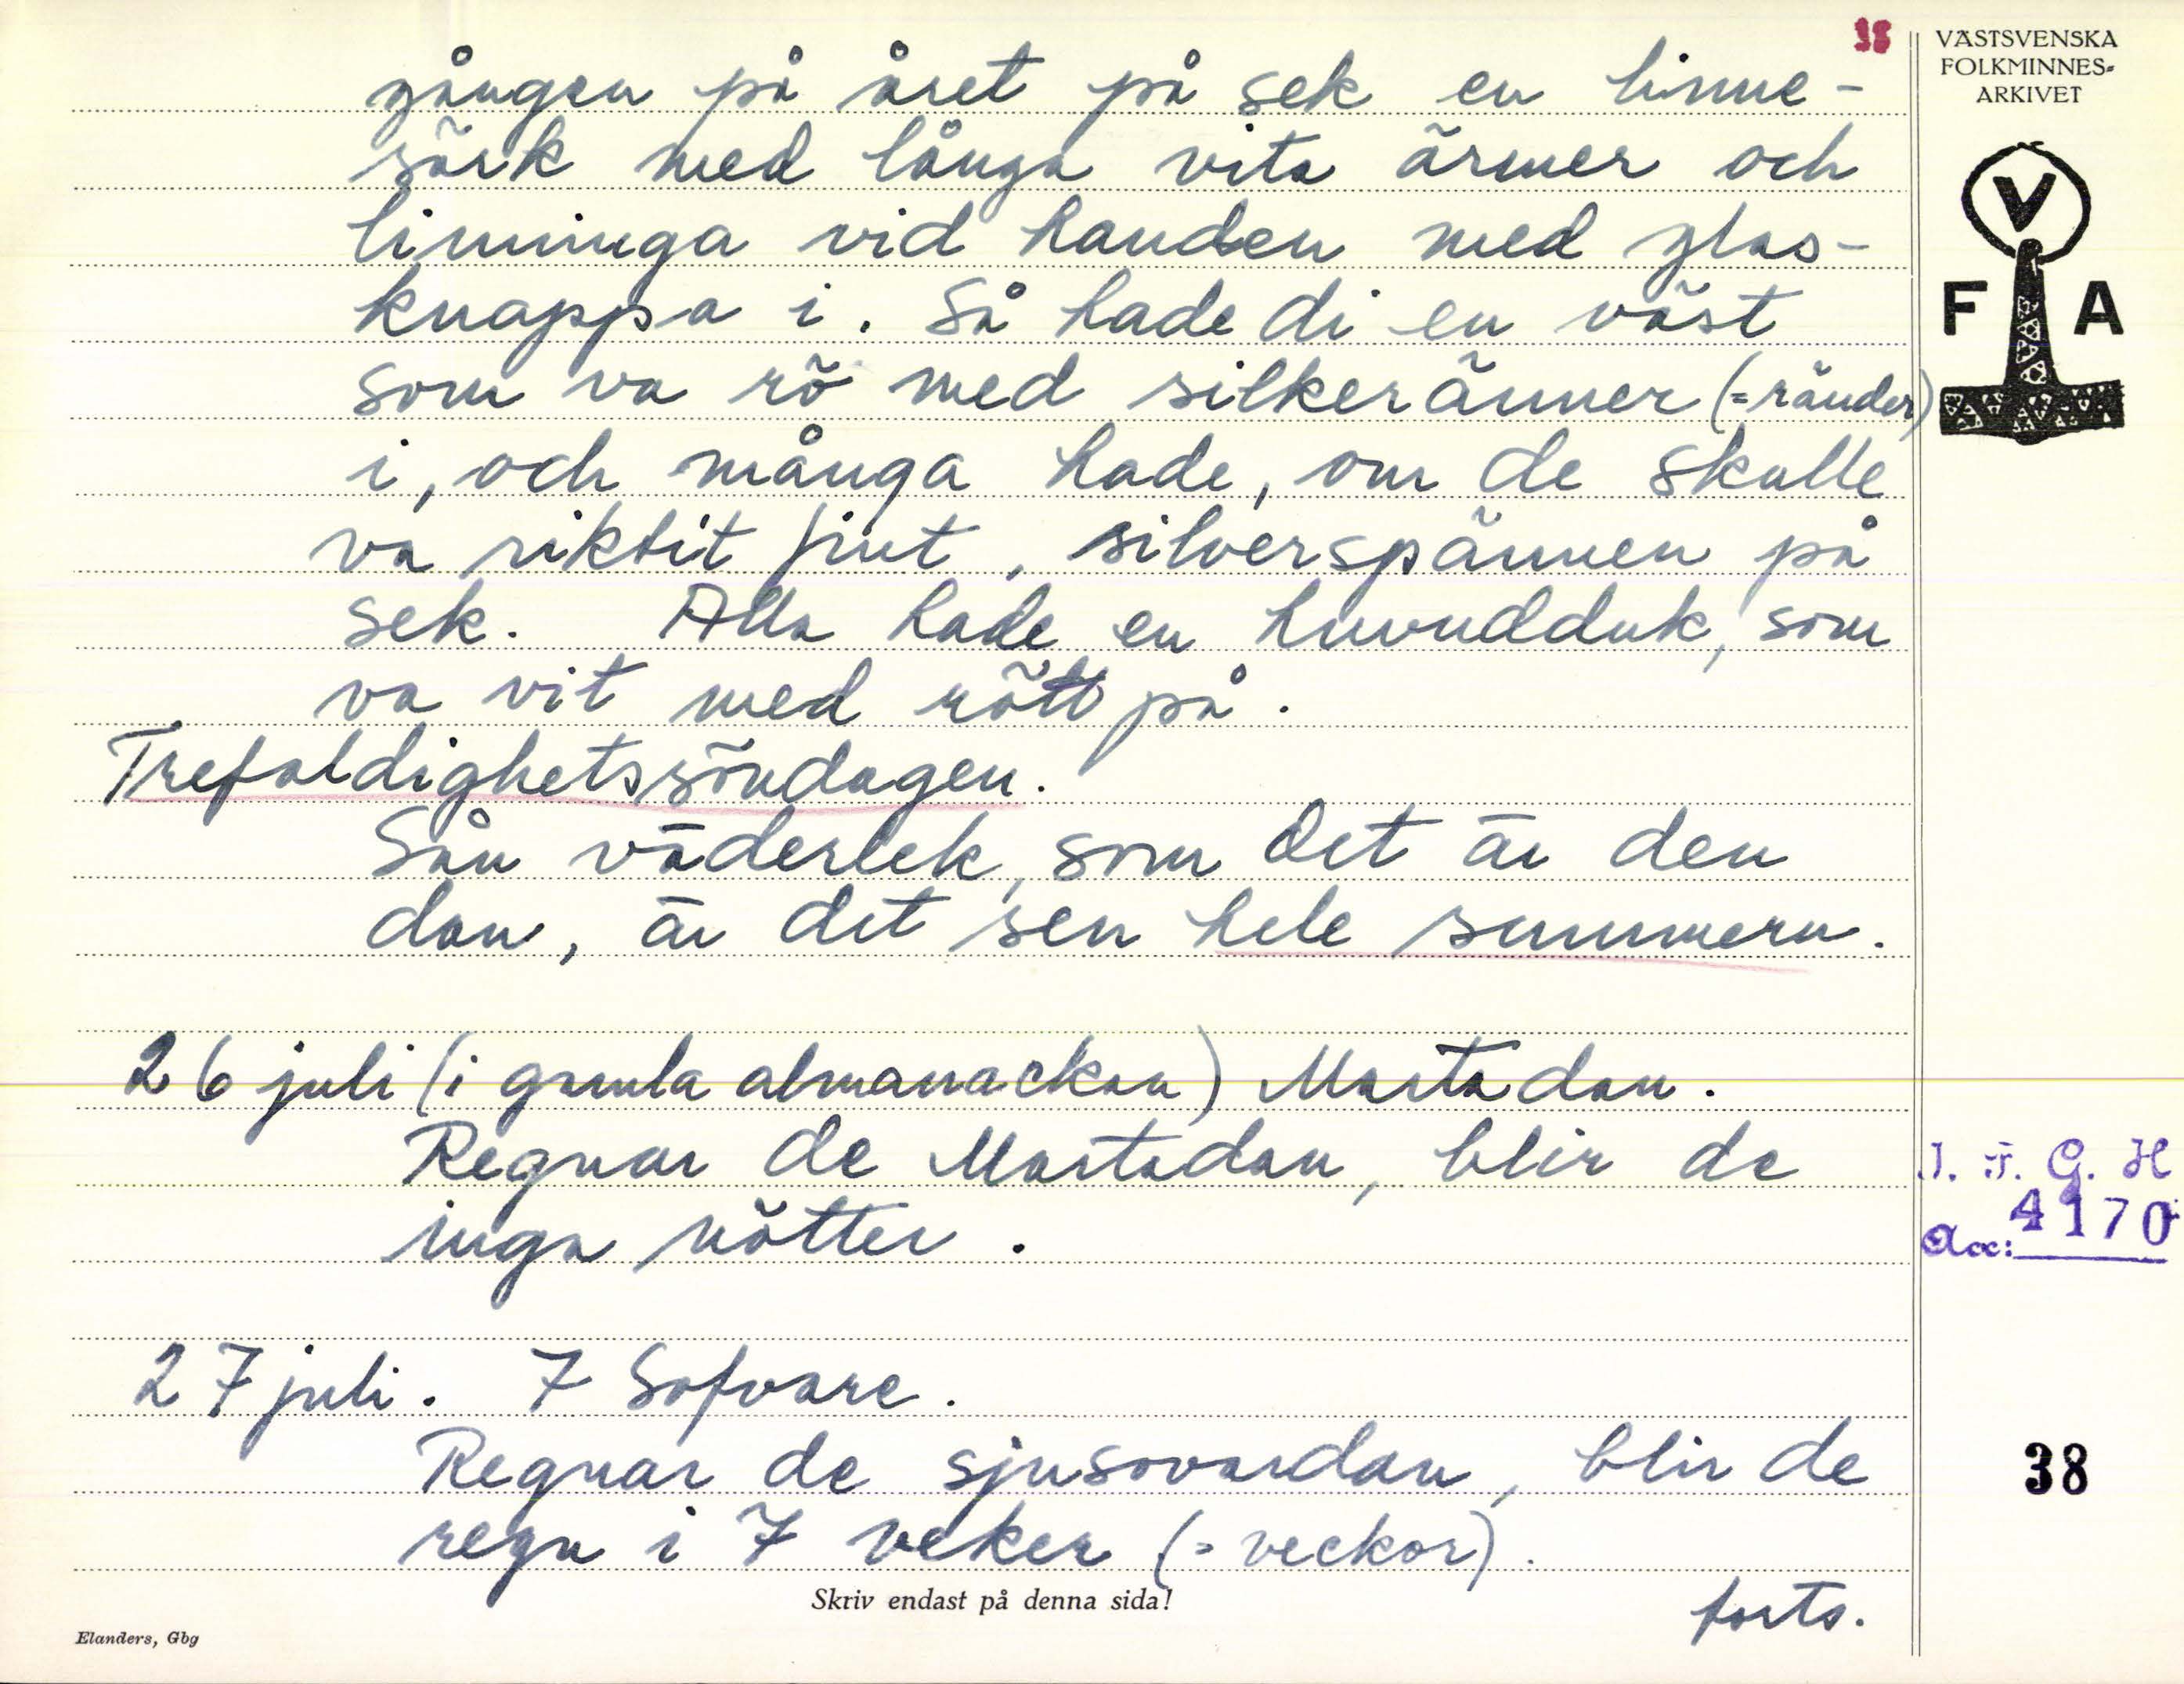 38
VÄSTSVENSKA
FOLKMINNES-
ARKIVET
V
F A
gången på året på sek en linne-
särk med långa vita ärmer och
linninga vid handen med glas-
knappa i. Så hade di en väst
som va rö med silkeränner (=ränder)
i, och många hade, om de skulle
va riktit fint, silverspännen på
sek. Alla hade en huvudduk, som
va vit med rött på.
Trefaldighetssöndagen.
Sån väderlek, som det är den
dan, är det sen hele summern.
26 juli (i gamla almanackan) Martadan.
Regnar de Martadan, blir de
inga nötter.
27 juli. 7 Sofvare.
Regnar de sjusovardan, blir de
regn i 7 veker (= veckor).
forts.
I. F. G. H
Acc: 4170
38
Skriv endast på denna sida!
Elanders, Gbg